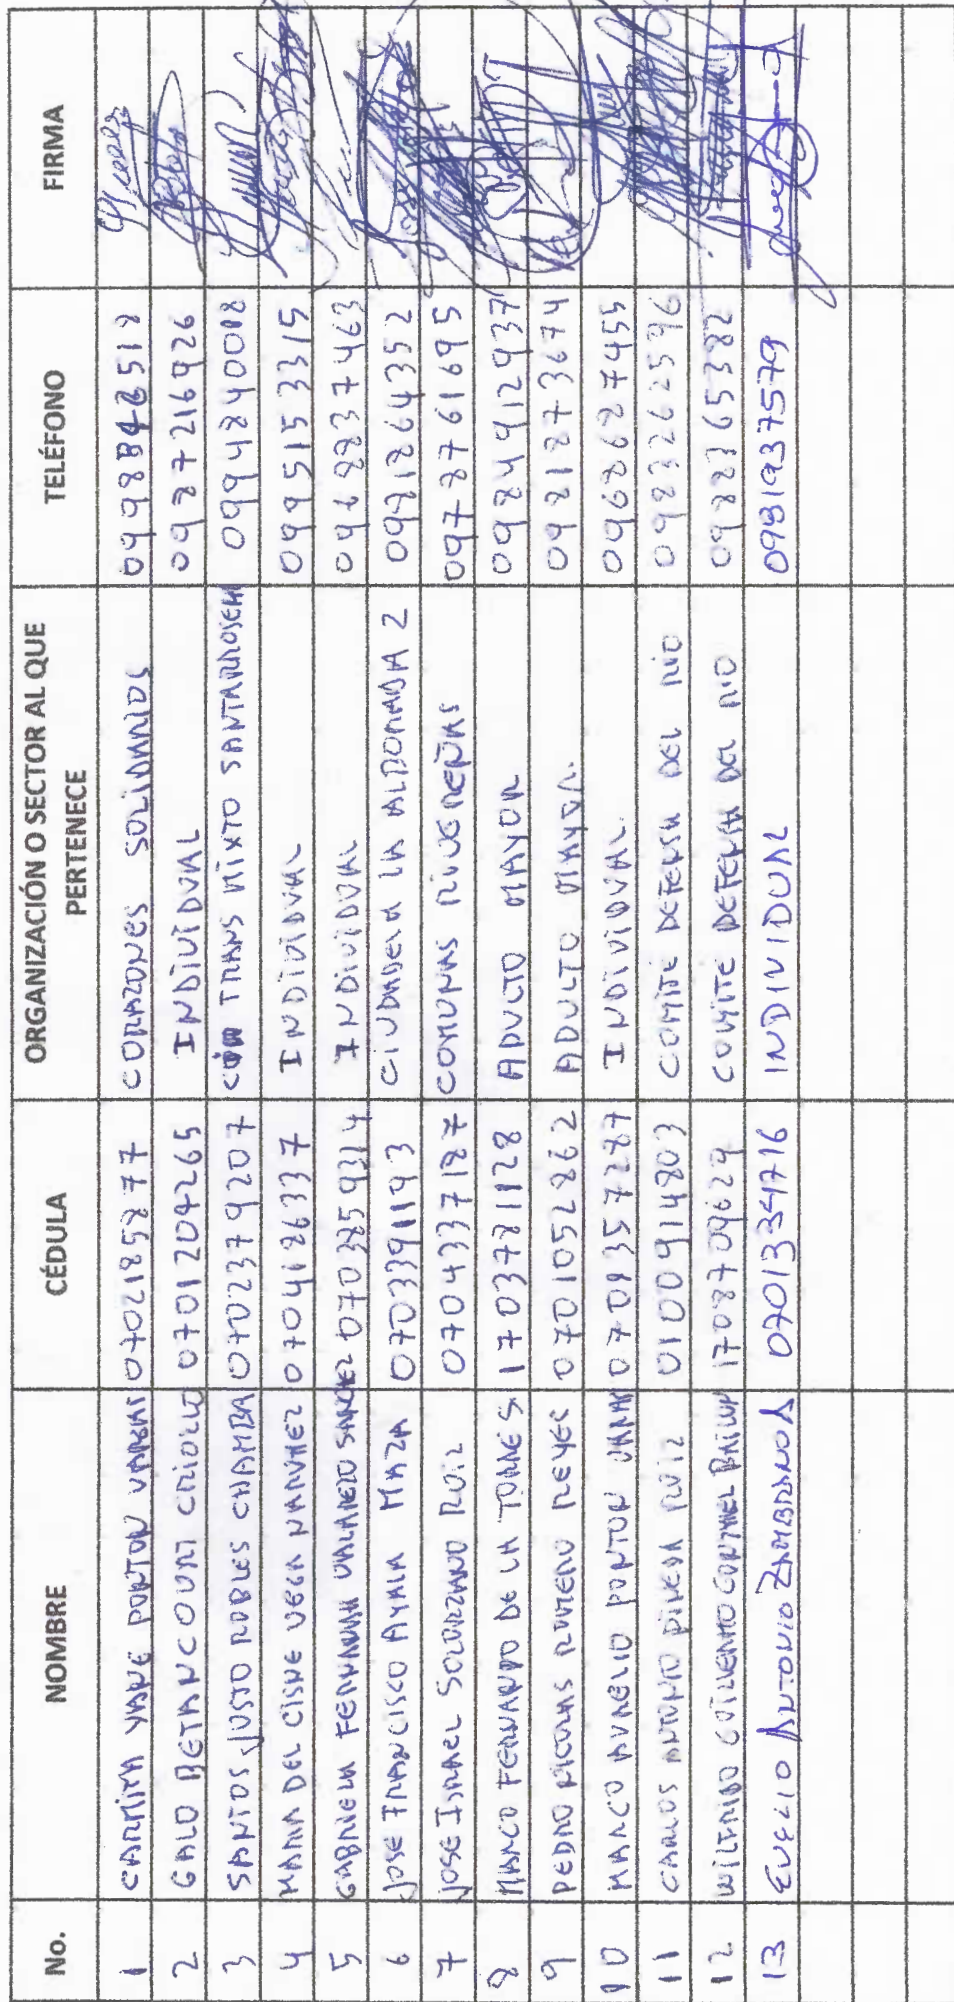 No. NOMBRE CÉDULA ORGANIZACIÓN O SECTOR AL QUE PERTENECE TELÉFONO FIRMA
1 CARMITA YANE PONTON VARGAS 0702185877 CORAZONES SOLIDARIOS
2 GALO BETANCOURT CRIOLLO 0701204265 INDIVIDUAL 0987216926
3 SANTOS JUSTO ROBLES CHAMBA 0702379207 TRANS MIXTO SANTARROSEÑ 0994840008
4 MARIA DEL CISNE VEGA NARVAEZ 0704186337 INDIVIDUAL 0995153315
5 GABRIELA FERNANDA VALAREZO SANCHEZ 0703859314 INDIVIDUAL 0968837463
6 JOSE FRANCISCO AYALA MAZA 0703391193 CIUDADELA LA ALBORADA 2 0981864352
7 JOSE ISRAEL SOLORZANO RUIZ 0704337187 COMUNAS RIVEREÑAS 0978761695
8 MARCO FERNANDO DE LA TORRE S. 1703781128 ADULTO MAYOR 0984912937
9 PEDRO NICOLAS ROMERO REYES 0701052862 ADULTO MAYOR. 0981873674
10 MARCO AURELIO PONTON 0701357287 INDIVIDUAL. 0968687455
11 CARLOS ANTONIO PINEDA RUIZ 0100914803 COMITE DEFENSA DEL RIO 0983262596
12 WILFRIDO GUILLERMO 1708709629 COMITE DEFENSA DEL RIO 0988365382
13 EVELIO ANTONIO ZAMBRANO A 0701334716 INDIVIDUAL 0981937579